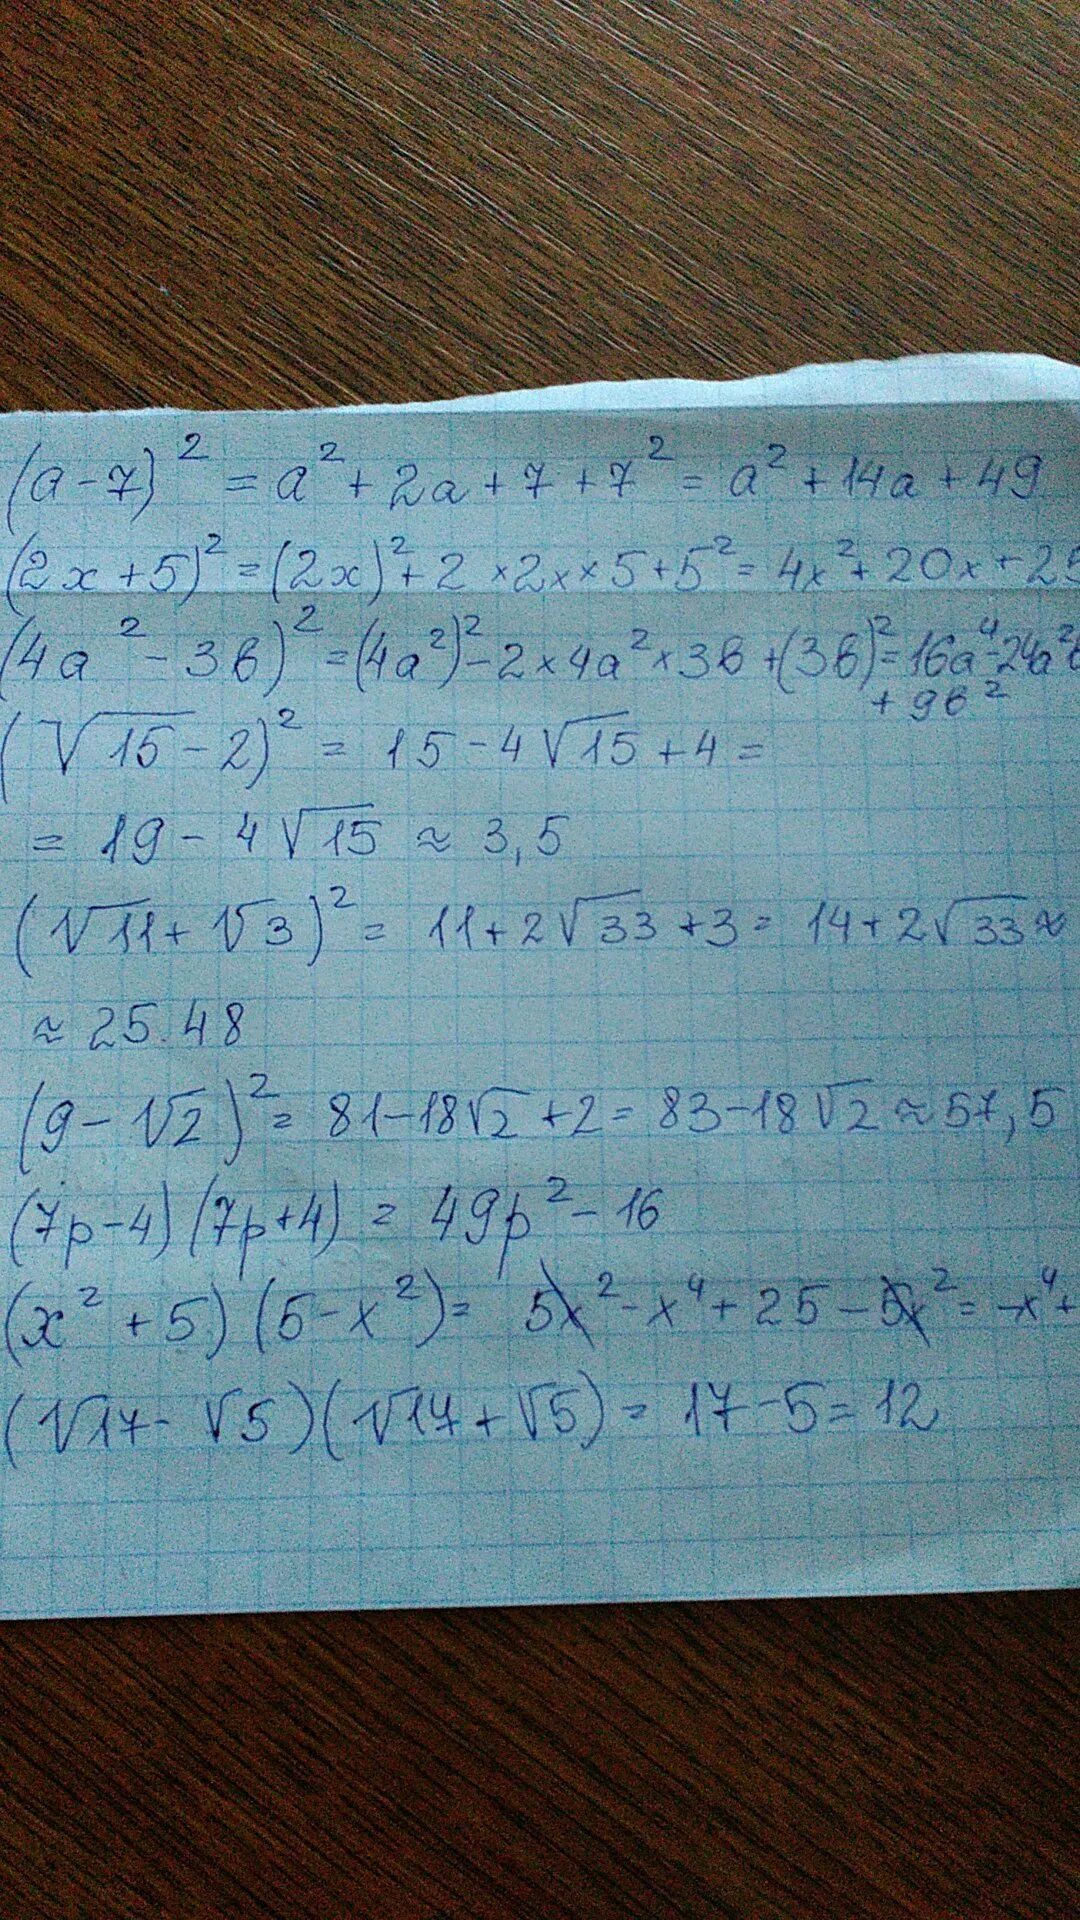 (a-7)² = a² + 2a + 7 + 7² = a² + 14a + 49
(2x+5)² = (2x)² + 2 × 2x × 5 + 5² = 4x² + 20x + 25
(4a² - 3b)² = (4a²)² - 2 × 4a² × 3b + (3b)² = 16a⁴ - 24a²b
+ 9b²
(√15 - 2)² = 15 - 4√15 + 4 =
= 19 - 4√15 ≈ 3,5
(√11 + √3)² = 11 + 2√33 + 3 = 14 + 2√33 ≈
≈ 25.48
(9 - √2)² = 81 - 18√2 + 2 = 83 - 18√2 ≈ 57,5
(7p-4)(7p+4) = 49p² - 16
(x² + 5)(5 - x²) = 5x² - x⁴ + 25 - 5x² = -x⁴ +
(√17 - √5)(√17 + √5) = 17 - 5 = 12